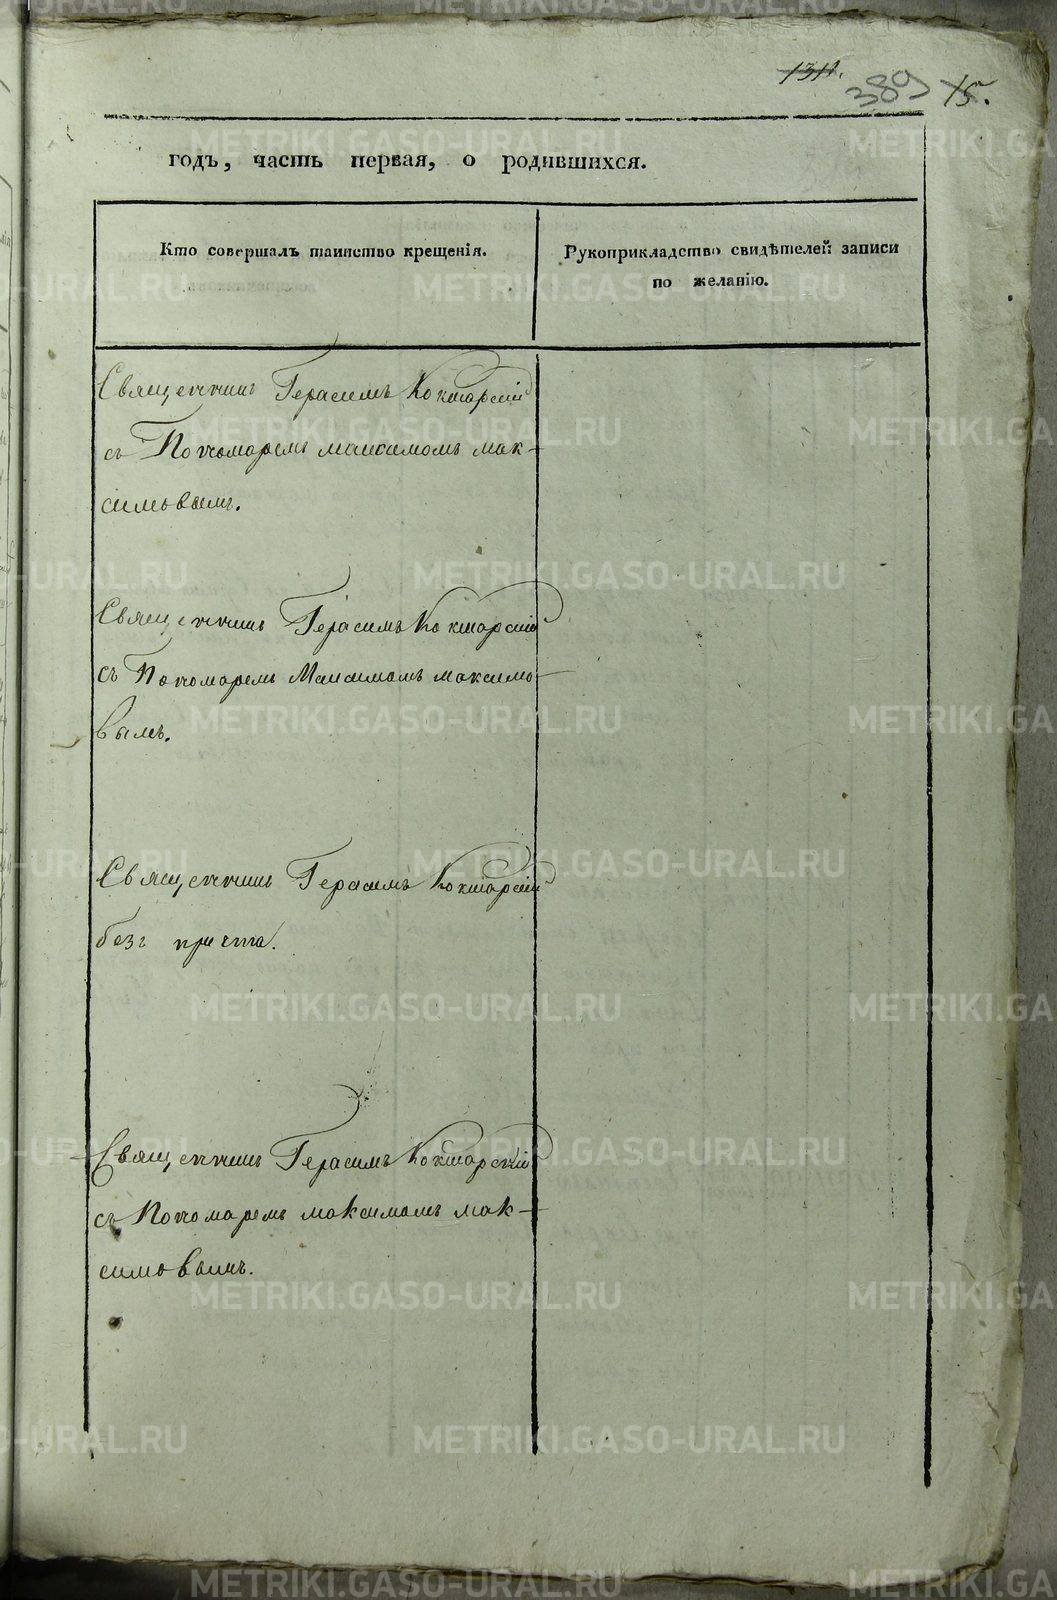 1311.
389 15.
годъ, часть первая, о родившихся.
Кто совершалъ таинство крещенія.
Рукоприкладство свидѣтелей записи
по желанію.
Священникъ Герасимъ Кокшарскій
съ Пономаремъ Максимомъ Мак-
симовымъ.
Священникъ Герасимъ Кокшарскій
съ Пономаремъ Максимомъ Максимо-
вымъ.
Священникъ Герасимъ Кокшарскій
безъ причта.
Священникъ Герасимъ Кокшарскій
съ Пономаремъ Максимомъ Мак-
симовымъ.
METRIKI.GASO-URAL.RU